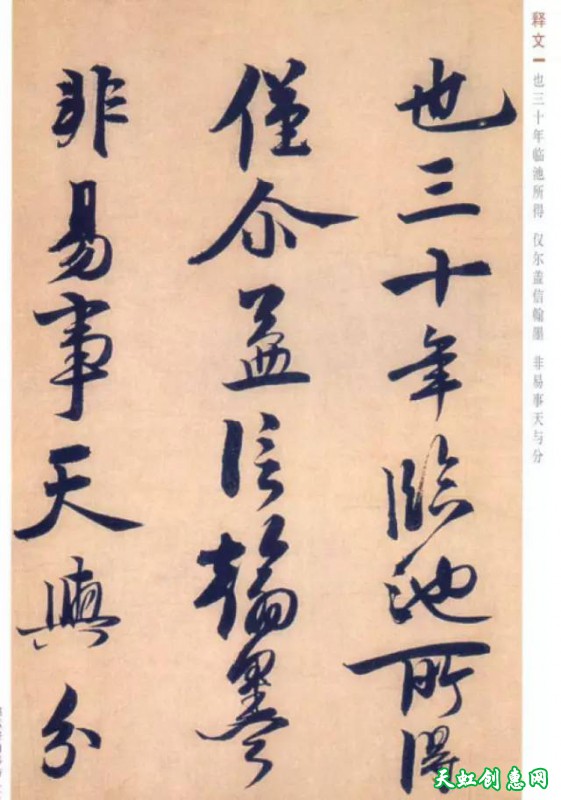 释文
也三十年临池所得 仅尔盖信翰墨 非易事天与分
也三十年臨池所得
僅尒蓋信翰墨
非易事天與分
天虹创意网